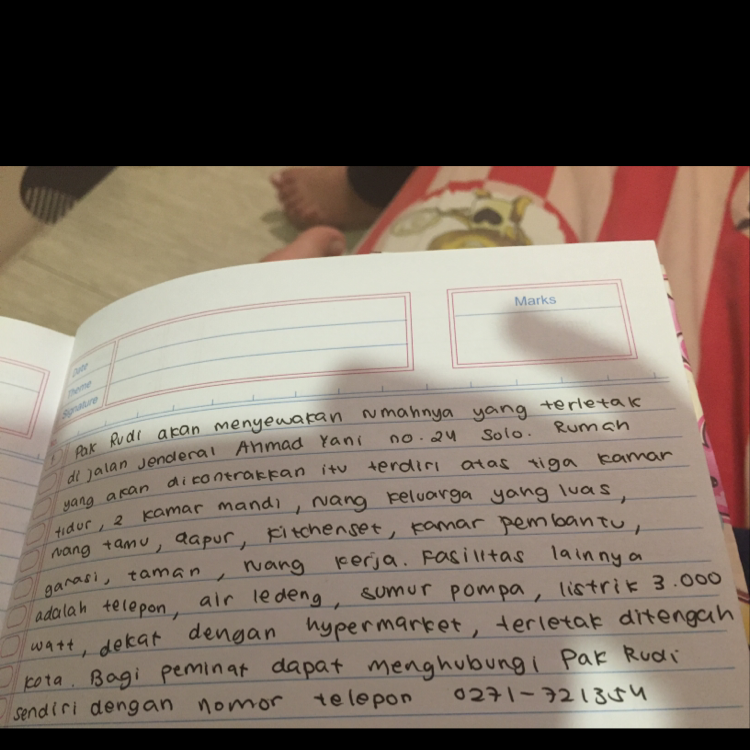 Marks
Date
Theme
Signature
Pak Rudi akan menyewakan rumahnya yang terletak
di jalan Jenderal Ahmad Yani no.24 Solo. Rumah
yang akan dikontrakkan itu terdiri atas tiga kamar
tidur, 2 kamar mandi, ruang keluarga yang luas,
ruang tamu, dapur, kitchenset, kamar pembantu,
garasi, taman, ruang kerja. Fasilitas lainnya
adalah telepon, air ledeng, sumur pompa, listrik 3.000
watt, dekat dengan hypermarket, terletak ditengah
kota. Bagi peminat dapat menghubungi Pak Rudi
sendiri dengan nomor telepon 0271-721354